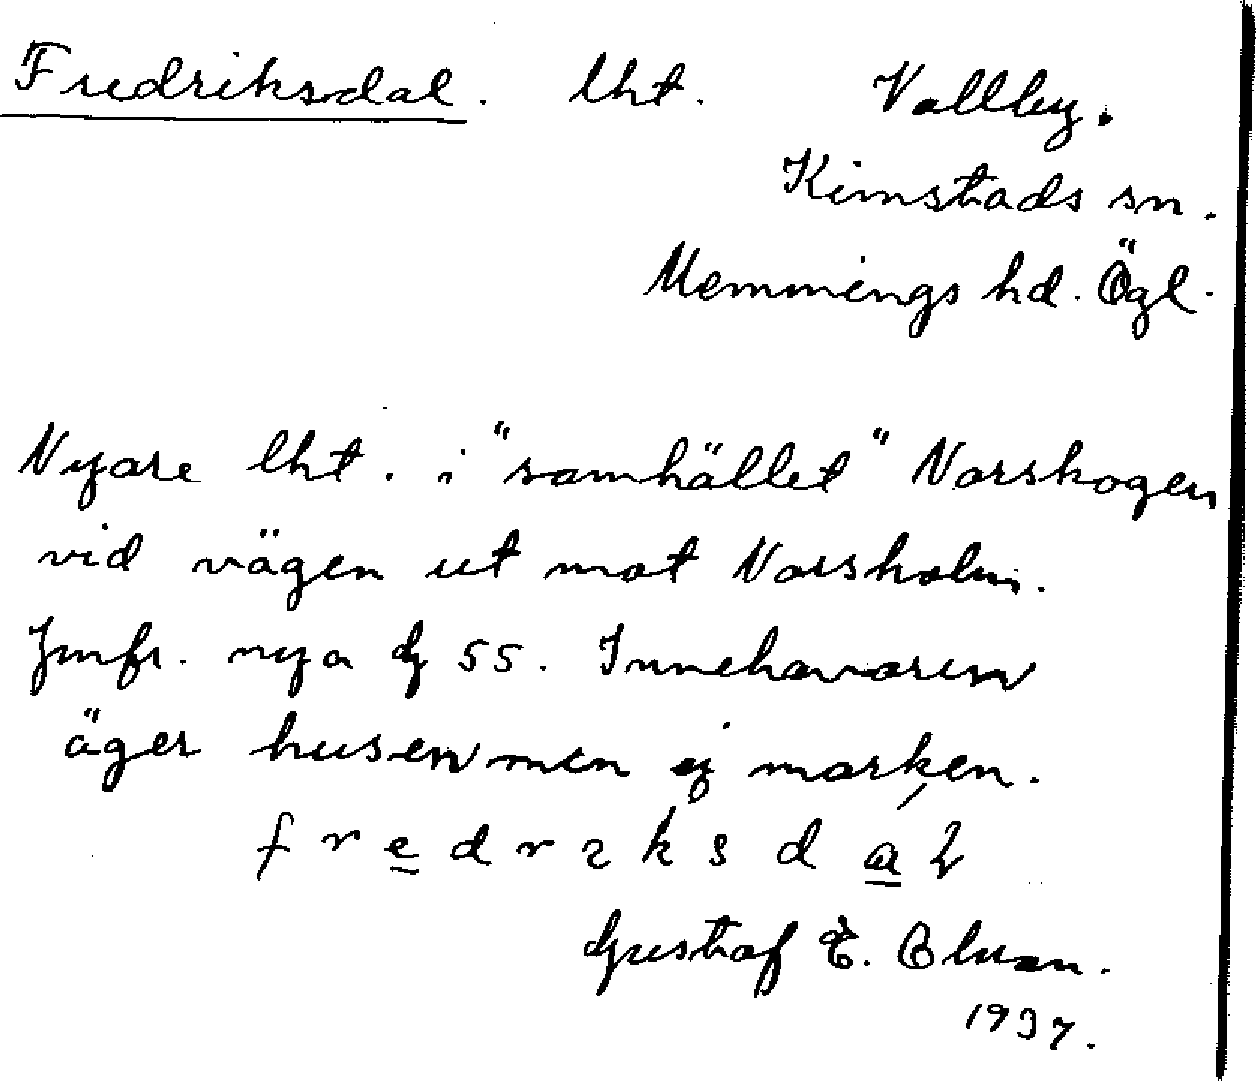 Fredriksdal. lht. Vallby.
Kimstads sn.
Memmings hd. Ögl.
Nyare lht. i "samhället" Norskogen
vid vägen ut mot Norsholm.
Jmfr. nya dj 55. Innehavaren
äger husen men ej marken.
f r e d r ı k s d a l
Gustaf E.
1937.